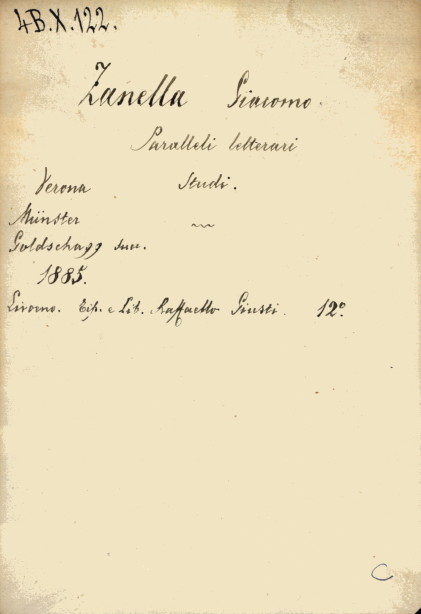 4B.X.122.
Zanella Giacomo.
Paralleli letterari
Studi.
Verona
Münster
Goldschagg succ.
1885.
Livorno. Tip. e Lib. Raffaello Giusti. 12º.
C